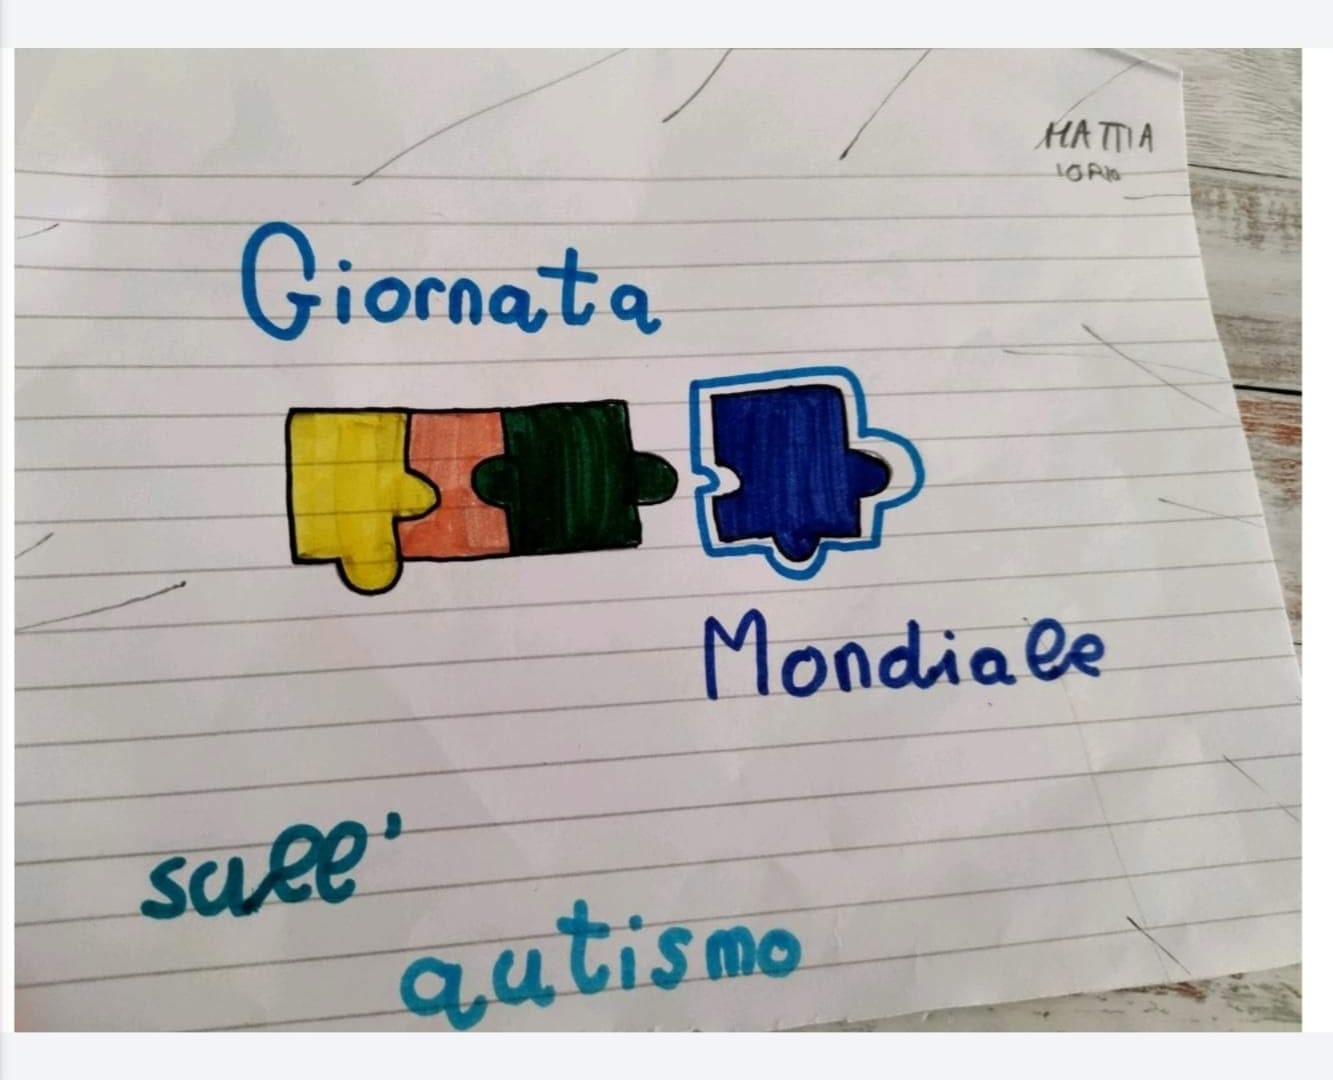 MATTIA
IORIO
Giornata
Mondiale
sull'
autismo